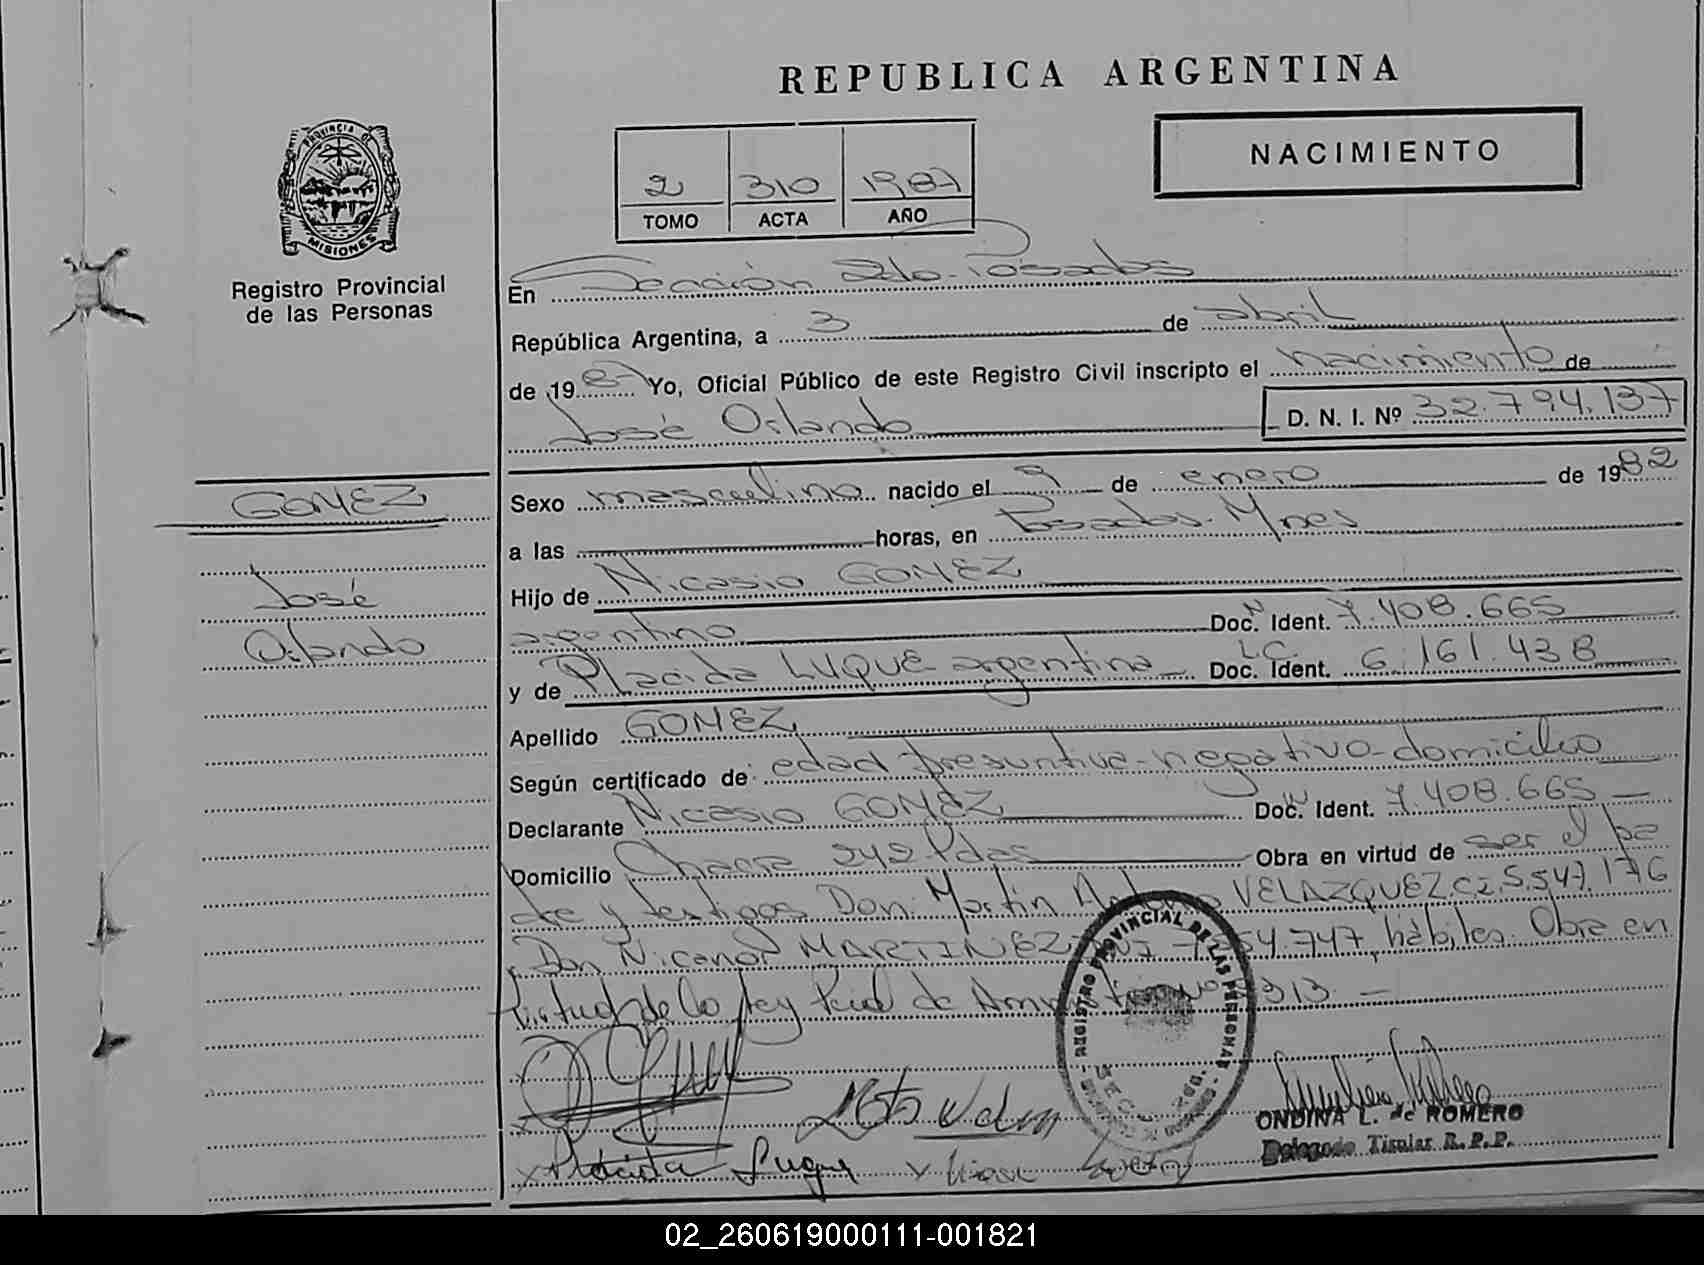 REPUBLICA ARGENTINA
NACIMIENTO
2 310 1987
TOMO ACTA AÑO
PROVINCIA DE
MISIONES
Registro Provincial
de las Personas
GOMEZ
José
Orlando
En Sección 2da. Posadas
República Argentina, a 3 de abril
de 1987 Yo, Oficial Público de este Registro Civil inscripto el nacimiento de
José Orlando D. N. I. Nº 32.794.137
Sexo masculino nacido el 9 de enero de 1982
a las horas, en Posadas-Mnes
Hijo de Nicasio GOMEZ
argentino Doc. Ident. 7.408.665
y de Placida LUQUE argentina L.C. Doc. Ident. 6.161.438
Apellido GOMEZ
Según certificado de: edad presuntiva-negativo-domicilio
Declarante Nicasio GOMEZ Doc. Ident. 7.408.665
Domicilio Chacra 242 Pdas Obra en virtud de ser el pa
dre y testigos Don: Martin VELAZQUEZ CI 5.547.176
Don Nicanor MARTINEZ 54.747, hábiles. Obra en
virtud de la ley de 1313
REGISTRO PROVINCIAL DE LAS PERSONAS
Placida Luque
ONDINA L. de ROMERO
Delegado Titular R. P. P.
02_260619000111-001821